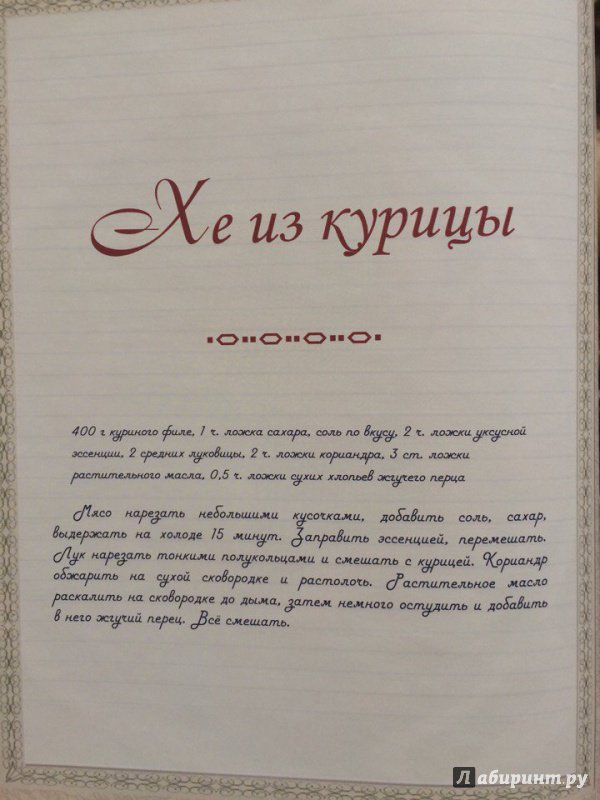 Хе из курицы
400 г куриного филе, 1 ч. ложка сахара, соль по вкусу, 2 ч. ложки уксусной
эссенции, 2 средних луковицы, 2 ч. ложки кориандра, 3 ст. ложки
растительного масла, 0,5 ч. ложки сухих хлопьев жгучего перца
Мясо нарезать небольшими кусочками, добавить соль, сахар,
выдержать на холоде 15 минут. Заправить эссенцией, перемешать.
Лук нарезать тонкими полукольцами и смешать с курицей. Кориандр
обжарить на сухой сковородке и растолочь. Растительное масло
раскалить на сковородке до дыма, затем немного остудить и добавить
в него жгучий перец. Всё смешать.
Лабиринт.ру